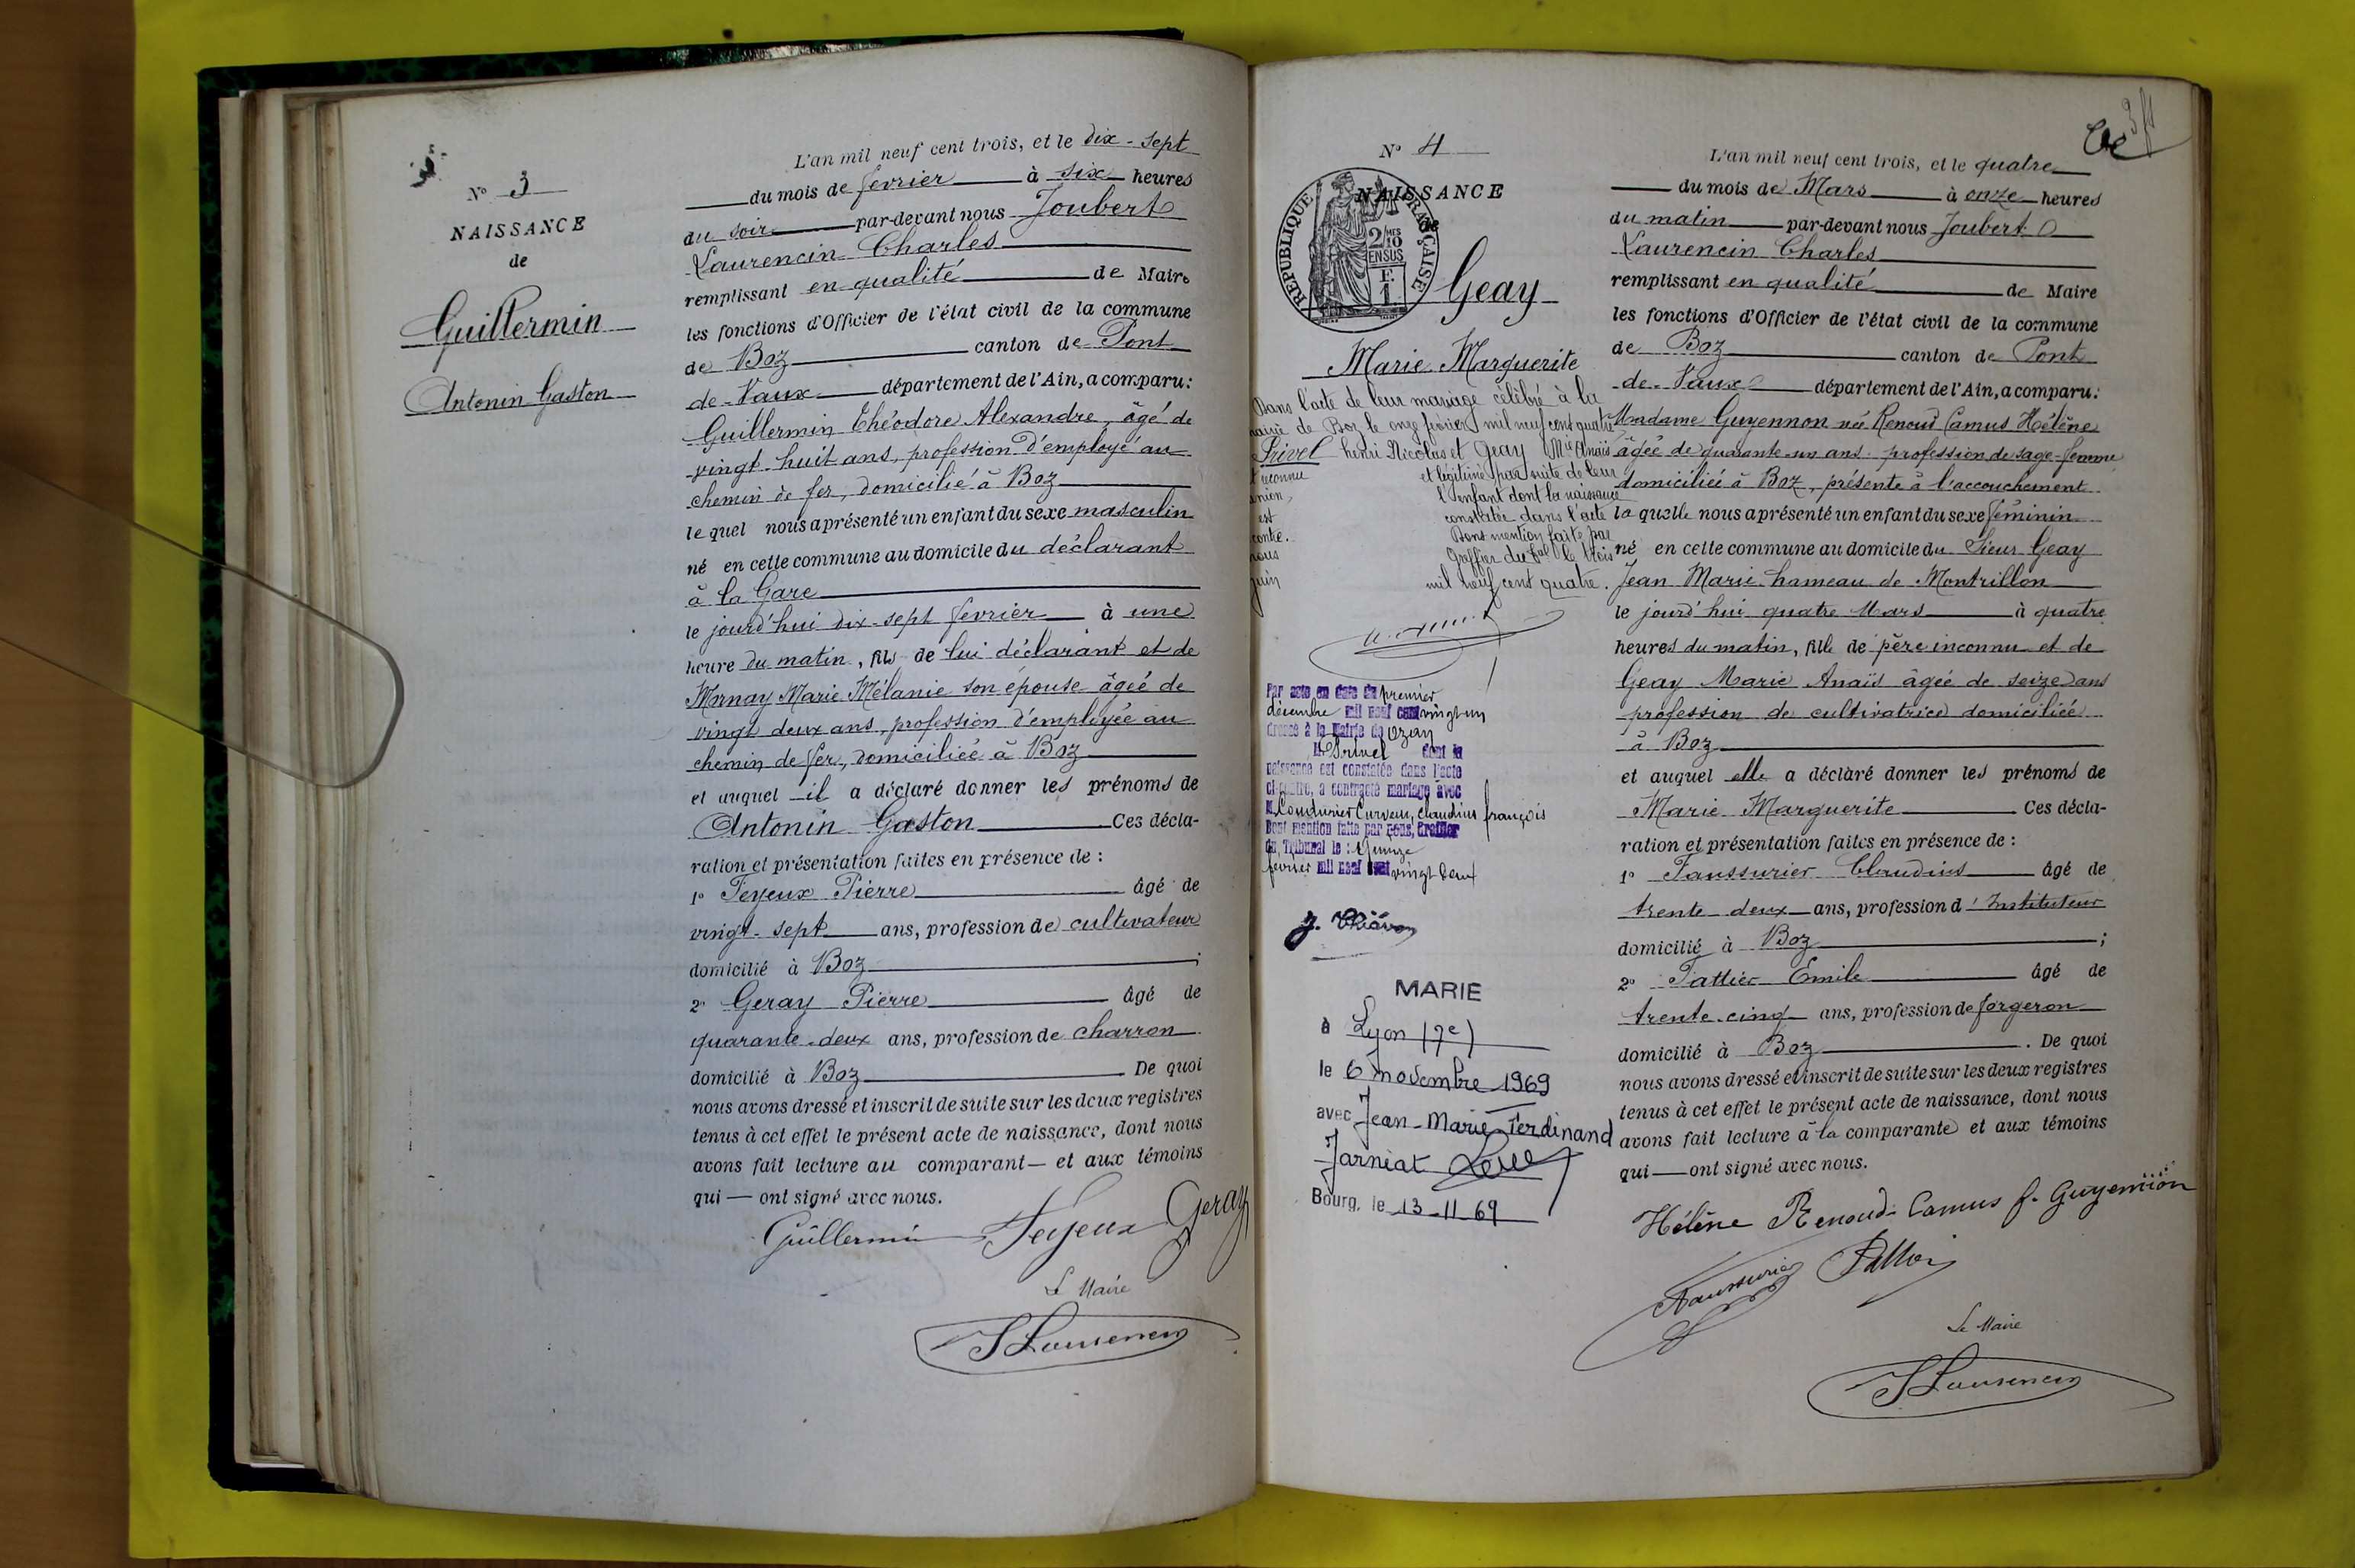 N° 3
NAISSANCE
de
Guillermin
Antonin Gaston
L'an mil neuf cent trois, et le dix-sept
du mois de fevrier à six heures
du soir par-devant nous Joubert
Laurencin Charles
remplissant en qualité de Maire
les fonctions d'Officier de l'état civil de la commune
de Boz canton de Pont
de-Vaux département de l'Ain, a comparu:
Guillermin Théodore Alexandre, âgé de
vingt-huit ans, profession d'employé au
chemin de fer, domicilié à Boz
le quel nous a présenté un enfant du sexe masculin
né en cette commune au domicile du déclarant
à la Gare
le jourd'hui dix-sept fevrier à une
heure du matin, fils de lui déclarant et de
Marie Mélanie son épouse âgée de
vingt deux ans, profession d'employée au
chemin de fer, domiciliée à Boz
et auquel il a déclaré donner les prénoms de
Antonin Gaston Ces décla-
ration et présentation faites en présence de :
1° Feyeux Pierre âgé de
vingt-sept ans, profession de cultivateur
domicilié à Boz ;
2° Geray Pierre âgé de
quarante-deux ans, profession de charron
domicilié à Boz De quoi
nous avons dressé et inscrit de suite sur les deux registres
tenus à cet effet le présent acte de naissance, dont nous
avons fait lecture au comparant — et aux témoins
qui — ont signé avec nous.
Guillermin Feyeux Geray
Le Maire
J Laurencin
N° 4
NAISSANCE
de
REPUBLIQUE FRANÇAISE
2/10
EN SUS
F.
1
Geay
Marie Marguerite
Dans l'acte de leur mariage célébré à la
mairie de Boz le onze février mil neuf cent quatre
Privel henri Nicolas et Geay Mie Anaïs
t reconnu et légitimé par suite de leur
union, l'enfant dont la naissance
est constatée dans l'acte
contre. Dont mention faite par
nous Greffier du tal le trois
juin mil neuf cent quatre.
Par acte en date du premier
décembre mil neuf cent vingt un
dressé à la Mairie de Ozan
Privel dont la
naissance est constatée dans l'acte
ci-contre, a contracté mariage avec
M. Coudurier Curveur, Claudius françois
Dont mention faite par nous, Greffier
du Tribunal le : Quinze
février mil neuf cent vingt deux
MARIE
à Lyon (7e)
le 6 novembre 1969
avec Jean-Marie-Ferdinand
Jarniat
Bourg, le 13-11-69
L'an mil neuf cent trois, et le quatre
du mois de Mars à onze heures
du matin par-devant nous Joubert
Laurencin Charles
remplissant en qualité de Maire
les fonctions d'Officier de l'état civil de la commune
de Boz canton de Pont
-de-Vaux département de l'Ain, a comparu:
Madame Guyennon née Renoud Camus Hélène
âgée de quarante-un ans profession de sage-femme
domiciliée à Boz, présente à l'accouchement
la quelle nous a présenté un enfant du sexe féminin
né en cette commune au domicile du Sieur Geay
Jean Marie hameau de Montrillon
le jourd'hui quatre Mars à quatre
heures du matin, fille de père inconnu et de
Geay Marie Anaïs âgée de seize ans
profession de cultivatrice domiciliée
à Boz
et auquel elle a déclaré donner les prénoms de
Marie Marguerite Ces décla-
ration et présentation faites en présence de :
1° Faussurier Claudius âgé de
trente deux ans, profession d'Instituteur
domicilié à Boz ;
2° Pattier Émile âgé de
trente-cinq ans, profession de forgeron
domicilié à Boz . De quoi
nous avons dressé et inscrit de suite sur les deux registres
tenus à cet effet le présent acte de naissance, dont nous
avons fait lecture à la comparante et aux témoins
qui — ont signé avec nous.
Hélène Renoud-Camus f. Guyennon
Faussurier Pattier
Le Maire
J Laurencin